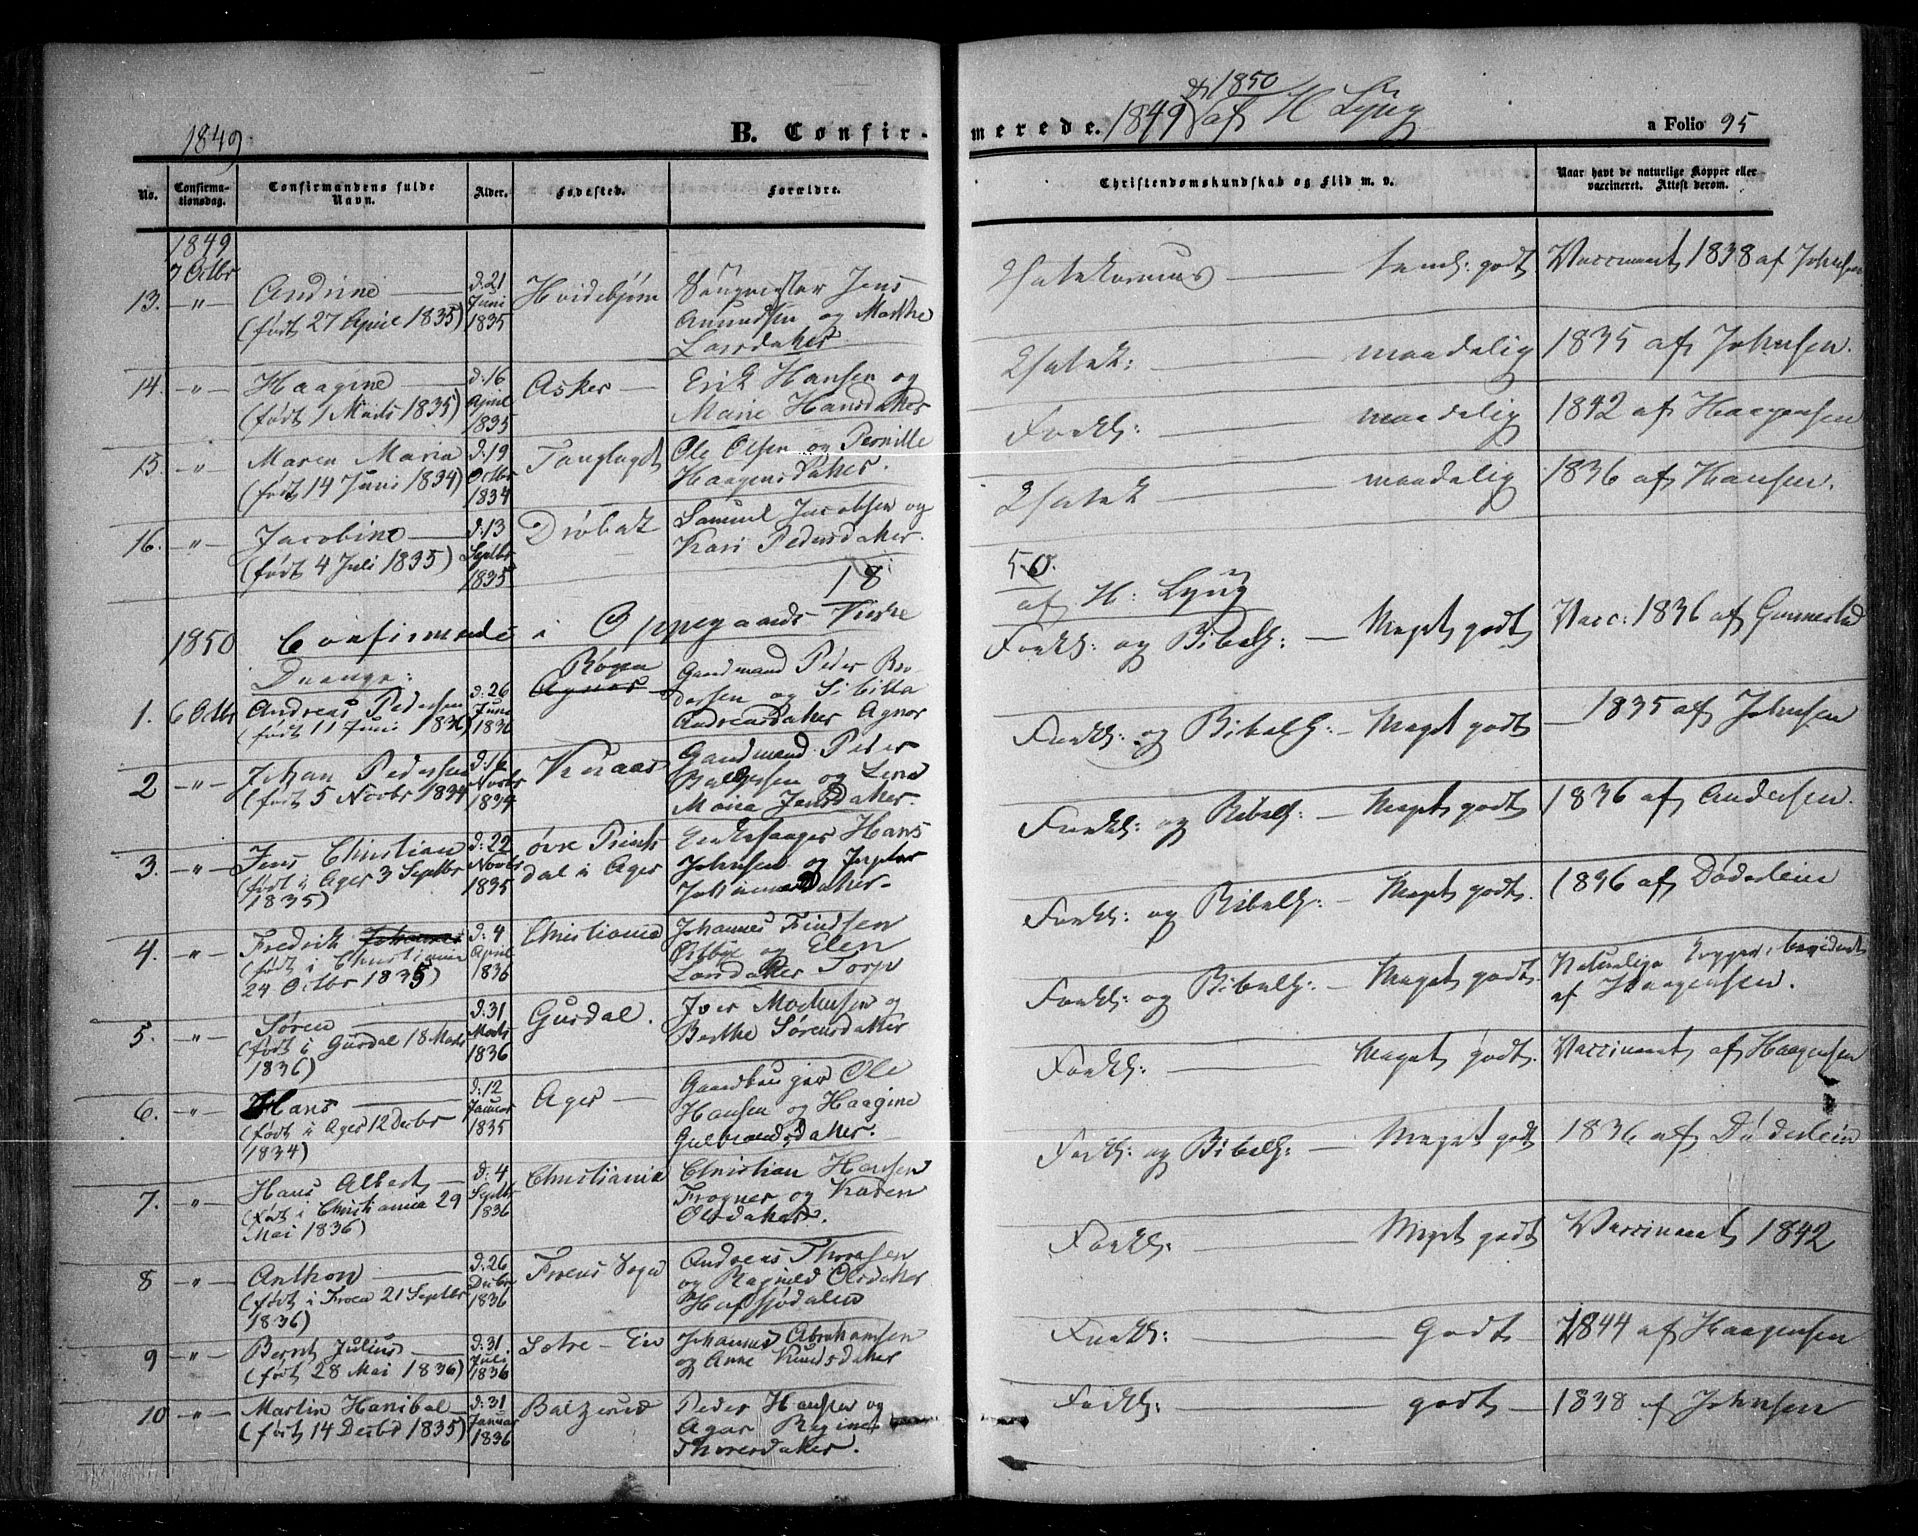 1849
B. Confirmerede. 1849 1850 af H Lyng
a Folio 95
No.
Confirmationsdag.
Confirmandens fulde Navn.
Alder.
Fødested.
Forældre.
Christendomskundskab og Flid m. v.
Naar havt de naturlige Kopper eller vaccineret. Attest derom.
1849
7 Octbr
13. -"- Andrine
(født 27 April 1835)
d: 21 Juni 1835
Hvidebjørn
Jens
og Marthe
Larsdatter
godt
1838 af Johnsen
14. -"- Haagine
(født 1 Marts 1835)
d: 16 April 1835
Asker
Erik Hansen og
Marie Hansdatter
maadelig
1835 af Johnsen.
15 -"- Maren Maria
(født 14 Juni 1834)
d: 19 Octbr 1834
Ole Olsen og Pernille
Haagensdatter.
Forkl:
maadelig
1842 af Haagensen
16. -"- Jacobine
(født 4 Juli 1835)
d: 13 Septbr 1835
Drøbak
Samuel Jacobsen og
Kari Pedersdatter.
maadelig
1836 af Hansen.
1850 Confirmerede i Oppegaards Kirke 18
50.
af H: Lyng
Drenge:
1. 6 Octbr Andreas Pedersen
(født 11 Juni 1836)
d: 26 Juni 1836
Gaardmand Peder
og Sibilla
Andreasdatter Agnor
Forkl: og Bibelh: — Meget godt
Vacc: 1836 af Gunnestad
2 -"- Johan Pedersen
(født 5 Novbr 1834
d: 16 Novbr 1834
Gaardmand Peder
og Lena
Maria Jensdatter.
Forkl: og Bibelh: — Meget godt
1835 af Johnsen
3. -"- Jens Christian
(født i Ager 3 Septbr
1835)
d: 22 Novbr 1835
øvre
dal i Ager
Hans
Johnsen og
Forkl: og Bibelh: — Meget godt
1836 af Andersen.
4. -"- Fredrik Johannes
(født i Christiania
24 Octbr 1835)
d: 4 April 1836
Christiania
Johannes Findsen
Østbye og Elen
Torp
Forkl: og Bibelh: Meget godt.
1836 af Døderlein
5. -"- Søren
(født i Gurdal 18 Marts
1836)
d: 31 Marts 1836
Gurdal.
Iver og
Berthe Sørensdatter
Forkl: og Bibelh: — Meget godt
Naturlige Kopper, bevidnet
af Haagensen.
6. -"- Hans
(født i Ager 12 Decbr
1834)
d: 12 Januar 1835
Ager
Gaardbruger Ole
Hansen og Haagine
Gulbrandsdatter.
Forkl: Meget godt.
Vaccineret af Haagensen
7. -"- Hans Albert
(født i Christiania 29
Mai 1836)
d: 4 Septbr 1836
Christiania
Christian Hansen
Frogner og Karen
Olsdatter.
Forkl: og Bibelh: — Meget godt
1836 af Døderlein
8 -"- Anthon
(født i Froen 21 Septbr
1836)
d: 26 Decbr 1836
Froens Sogn
Andreas
og Ragnild Olsdatter
Forkl: Meget godt
Vaccineret 1842
9 -"- Bernt Julius
(født 28 Mai 1836)
d: 31. Juli 1836
Johannes Abrahamsen
og Anne Knudsdatter
Forkl: Godt
1844 af Haagensen
10 -"- Martin Hanibal
(født 14 Decbr 1835)
d: 31 Januar 1836
Balzerud
Peder Hansen og
Agar Regine
Thoresdatter.
Forkl: godt
1838 af Johnsen